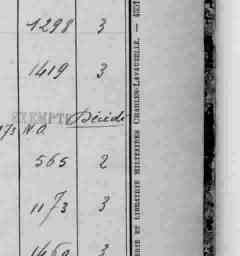 1298 3
1419 3
EXEMPTÉ Décédé
173 N.A
565 2
1173 3
1469 3
RIE ET LIBRAIRIE MILITAIRES CHARLES-LAVAUZELLE. —